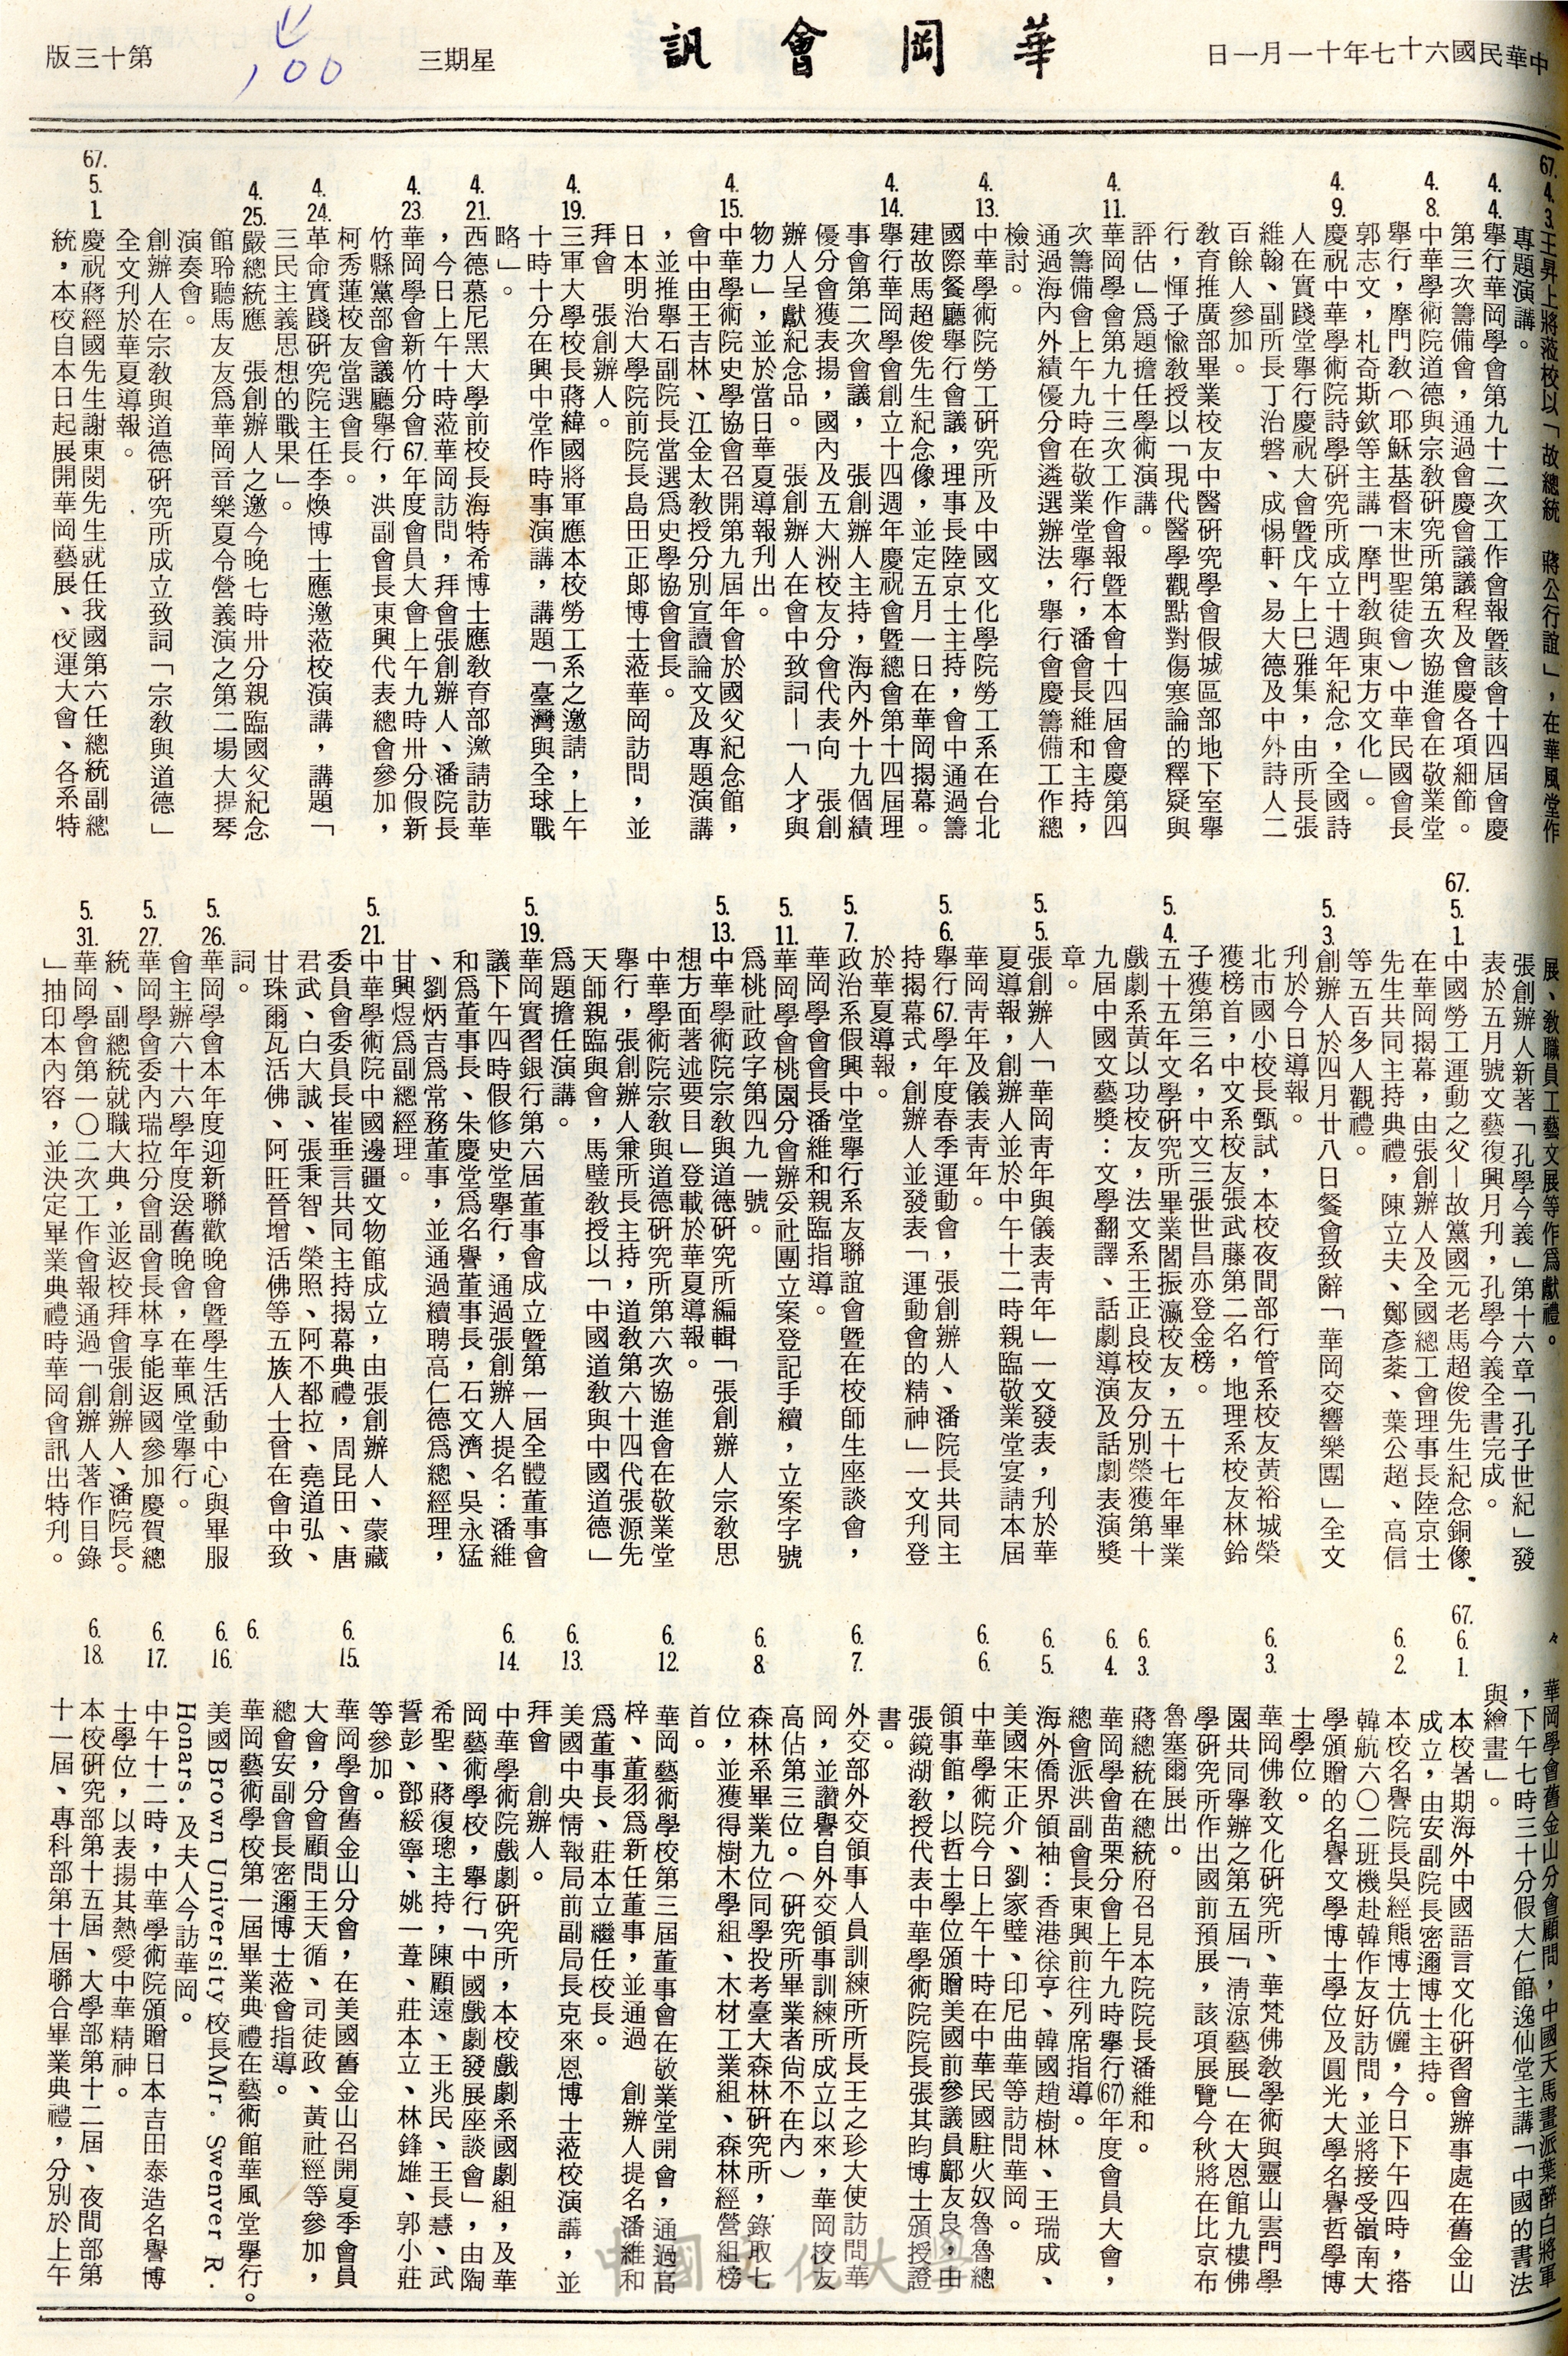 中華民國六十七年十一月一日
華岡會訊
星期三
第十三版
100
67.4.3.王昇上將蒞校以「故總統　蔣公行誼」，在華風堂作
專題演講。
4.4.舉行華岡學會第九十二次工作會報暨該會十四屆會慶
第三次籌備會，通過會慶會議議程及會慶各項細節。
4.8.中華學術院道德與宗教研究所第五次協進會在敬業堂
舉行，摩門教（耶穌基督末世聖徒會）中華民國會長
郭志文，札奇斯欽等主講「摩門教與東方文化」。
4.9.慶祝中華學術院詩學研究所成立十週年紀念，全國詩
人在實踐堂舉行慶祝大會暨戊午上巳雅集，由所長張
維翰、副所長丁治磐、成惕軒、易大德及中外詩人二
百餘人參加。
教育推廣部畢業校友中醫研究學會假城區部地下室舉
行，惲子愉教授以「現代醫學觀點對傷寒論的釋疑與
評估」爲題擔任學術演講。
4.11.華岡學會第九十三次工作會報暨本會十四屆會慶第四
次籌備會上午九時在敬業堂舉行，潘會長維和主持，
通過海內外績優分會遴選辦法，舉行會慶籌備工作總
檢討。
4.13.中華學術院勞工研究所及中國文化學院勞工系在台北
國際餐廳舉行會議，理事長陸京士主持，會中通過籌
建故馬超俊先生紀念像，並定五月一日在華岡揭幕。
4.14.舉行華岡學會創立十四週年慶祝會暨總會第十四屆理
事會第二次會議，　張創辦人主持，海內外十九個績
優分會獲表揚，國內及五大洲校友分會代表向　張創
辦人呈獻紀念品。　張創辦人在會中致詞—「人才與
物力」，並於當日華夏導報刊出。
4.15.中華學術院史學協會召開第九屆年會於國父紀念館，
會中由王吉林、江金太教授分別宣讀論文及專題演講
，並推舉石副院長當選爲史學協會會長。
日本明治大學院前院長島田正郎博士蒞華岡訪問，並
拜會　張創辦人。
4.19.三軍大學校長蔣緯國將軍應本校勞工系之邀請，上午
十時十分在興中堂作時事演講，講題「臺灣與全球戰
略」。
4.21.西德慕尼黑大學前校長海特希博士應敎育部邀請訪華
，今日上午十時蒞華岡訪問，拜會張創辦人、潘院長
4.23.華岡學會新竹分會67.年度會員大會上午九時卅分假新
竹縣黨部會議廳舉行，洪副會長東興代表總會參加，
柯秀蓮校友當選會長。
4.24.革命實踐研究院主任李煥博士應邀蒞校演講，講題「
三民主義思想的戰果」。
4.25.嚴總統應　張創辦人之邀今晚七時卅分親臨國父紀念
館聆聽馬友友爲華岡音樂夏令營義演之第二場大提琴
演奏會。
創辦人在宗教與道德研究所成立致詞「宗教與道德」
全文刋於華夏導報。
67.5.1.慶祝蔣經國先生謝東閔先生就任我國第六任總統副總
統，本校自本日起展開華岡藝展、校運大會、各系特
展、教職員工藝文展等作爲獻禮。
張創辦人新著「孔學今義」第十六章「孔子世紀」發
表於五月號文藝復興月刊，孔學今義全書完成。
67.5.1.中國勞工運動之父—故黨國元老馬超俊先生紀念銅像
在華岡揭幕，由張創辦人及全國總工會理事長陸京士
先生共同主持典禮，陳立夫、鄭彥棻、葉公超、高信
等五百多人觀禮。
5.3.創辦人於四月廿八日餐會致辭「華岡交響樂團」全文
刋於今日導報。
北市國小校長甄試，本校夜間部行管系校友黃裕城榮
獲榜首，中文系校友張武藤第二名，地理系校友林鈴
子獲第三名，中文三張世昌亦登金榜。
5.4.五十五年文學研究所畢業閻振瀛校友，五十七年畢業
戲劇系黃以功校友，法文系王正良校友分別榮獲第十
九屆中國文藝獎：文學翻譯、話劇導演及話劇表演獎
章。
5.5.張創辦人「華岡靑年與儀表靑年」一文發表，刋於華
夏導報，創辦人並於中午十二時親臨敬業堂宴請本屆
華岡靑年及儀表靑年。
5.6.舉行67.學年度春季運動會，張創辦人、潘院長共同主
持揭幕式，創辦人並發表「運動會的精神」一文刋登
於華夏導報。
5.7.政治系假興中堂舉行系友聯誼會暨在校師生座談會，
華岡學會會長潘維和親臨指導。
5.11.華岡學會桃園分會辦妥社團立案登記手續，立案字號
爲桃社政字第四九一號。
5.13.中華學術院宗教與道德研究所編輯「張創辦人宗教思
想方面著述要目」登載於華夏導報。
中華學術院宗教與道德研究所第六次協進會在敬業堂
舉行，張創辦人兼所長主持，道教第六十四代張源先
天師親臨與會，馬璧教授以「中國道教與中國道德」
爲題擔任演講。
5.19.華岡實習銀行第六屆董事會成立暨第一屆全體董事會
議下午四時假修史堂舉行，通過張創辦人提名：潘維
和爲董事長、朱慶堂爲名譽董事長，石文濟、吳永猛
、劉炳吉爲常務董事，並通過續聘高仁德爲總經理，
甘興煜爲副總經理。
5.21.中華學術院中國邊疆文物館成立，由張創辦人、蒙藏
委員會委員長崔垂言共同主持揭幕典禮，周昆田、唐
君武、白大誠、張秉智、榮照、阿不都拉、堯道弘、
甘珠爾瓦活佛、阿旺晉增活佛等五族人士曾在會中致
詞。
5.26.華岡學會本年度迎新聯歡晚會暨學生活動中心與畢服
會主辦六十六學年度送舊晚會，在華風堂舉行。
5.27.華岡學會委內瑞拉分會副會長林享能返國參加慶賀總
統、副總統就職大典，並返校拜會張創辦人、潘院長。
5.31.華岡學會第一〇二次工作會報通過「創辦人著作目錄
」抽印本內容，並決定畢業典禮時華岡會訊出特刋。
〃華岡學會舊金山分會顧問，中國天馬畫派葉醉白將軍
，下午七時三十分假大仁館逸仙堂主講「中國的書法
與繪畫」。
67.6.1.本校暑期海外中國語言文化研習會辦事處在舊金山
成立，由安副院長密邇博士主持。
6.2.本校名譽院長吳經熊博士伉儷，今日下午四時，搭
韓航六〇二班機赴韓作友好訪問，並將接受嶺南大
學頒贈的名譽文學博士學位及圓光大學名譽哲學博
士學位。
6.3.華岡佛教文化研究所、華梵佛敎學術與靈山雲門學
園共同舉辦之第五屆「淸涼藝展」在大恩館九樓佛
學研究所作出國前預展，該項展覽今秋將在比京布
魯塞爾展出。
6.3.蔣總統在總統府召見本院院長潘維和。
6.4.華岡學會苗栗分會上午九時舉行(67)年度會員大會，
總會派洪副會長東興前往列席指導。
6.5.海外僑界領袖：香港徐亨、韓國趙樹林、王瑞成、
美國宋正介、劉家璧、印尼曲華等訪問華岡。
6.6.中華學術院今日上午十時在中華民國駐火奴魯魯總
領事館，以哲士學位頒贈美國前參議員鄺友良，由
張鏡湖敎授代表中華學術院院長張其昀博士頒授證
書。
6.7.外交部外交領事人員訓練所所長王之珍大使訪問華
岡，並讚譽自外交領事訓練所成立以來，華岡校友
高佔第三位。（研究所畢業者尙不在內）
6.8.森林系畢業九位同學投考臺大森林研究所，錄取七
位，並獲得樹木學組、木材工業組、森林經營組榜
首。
6.12.華岡藝術學校第三屆董事會在敬業堂開會，通過高
梓、董羽爲新任董事，並通過　創辦人提名潘維和
爲董事長、莊本立繼任校長。
6.13.美國中央情報局前副局長克來恩博士蒞校演講，並
拜會　創辦人。
6.14.中華學術院戲劇研究所，本校戲劇系國劇組，及華
岡藝術學校，舉行「中國戲劇發展座談會」，由陶
希聖、蔣復璁主持，陳顧遠、王兆民、王長慧、武
誓彭、鄧綏寧、姚一葦、莊本立、林鋒雄、郭小莊
等參加。
6.15.華岡學會舊金山分會，在美國舊金山召開夏季會員
大會，分會顧問王天循、司徒政、黃社經等參加，
總會安副會長密邇博士蒞會指導。
6.華岡藝術學校第一屆畢業典禮在藝術館華風堂舉行。
6.16.美國Brown University校長Mr. Swenver R.
Honars.及夫人今訪華岡。
6.17.中午十二時，中華學術院頒贈日本吉田泰造名譽博
士學位，以表揚其熱愛中華精神。
6.18.本校研究部第十五屆、大學部第十二屆、夜間部第
十一屆、專科部第十屆聯合畢業典禮，分別於上午
中國文化大學